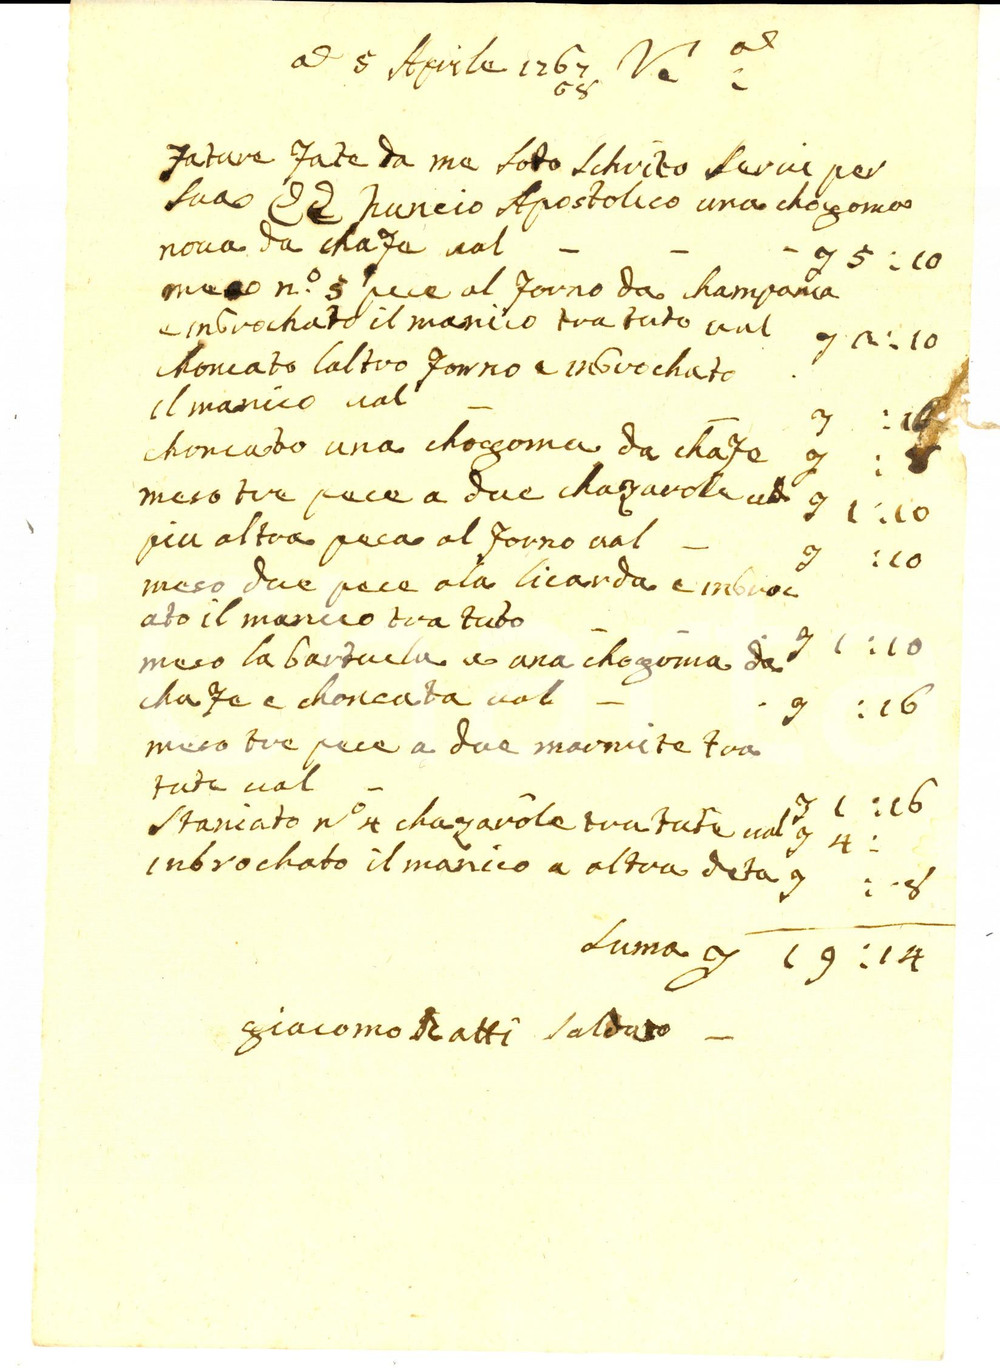 ad 5 Aprile 1767 Va
68
fature fate da me Soto Schrito Servi per
Sua EE Nuncio Apostolico una chogoma
nova da chafe val - - - g 5 : 10
meso n.o 5 pece al forno da champania
e inbrochato il manico tra tuto val g 2 : 10
choncato laltro forno e inbrochato
il manico val - g : 16
choncato una chogoma da chafe g : 8
meso tre pece a due chazarole val g 1 : 10
piu altra peca al forno val - g : 10
meso due pece ala licarda e inbroc
ato il manico tra tuto - g 1 : 10
meso la bartuela a una chogoma da
chafe e choncata val - g : 16
meso tre pece a due marmite tra
tute val - g 1 : 16
Staniato n.o 4 chazarole tra tute val g 4 :
inbrochato il manico a altra deta g : 8
Suma g 19 : 14
giacomo Ratti Saldato -